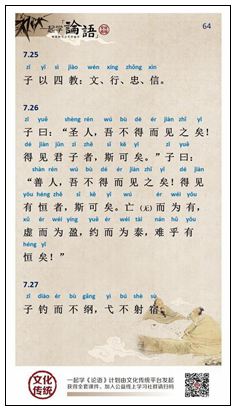 一起学 論語
64
7.25
zǐ yǐ sì jiào wén xíng zhōng xìn
子 以 四 教：文、行、忠、信。
7.26
zǐ yuē shèng rén wú bù dé ér jiàn zhī yǐ
子 曰：“圣 人，吾 不 得 而 见 之 矣！
dé jiàn jūn zǐ zhě sī kě yǐ zǐ yuē
得 见 君 子 者，斯 可 矣。”子 曰：
shàn rén wú bù dé ér jiàn zhī yǐ dé jiàn
“善 人，吾 不 得 而 见 之 矣！得 见
yǒu héng zhě sī kě yǐ wú ér wéi yǒu
有 恒 者，斯 可 矣。亡（无）而 为 有，
xū ér wéi yíng yuē ér wéi tài nán hū yǒu
虚 而 为 盈，约 而 为 泰，难 乎 有
héng yǐ
恒 矣！”
7.27
zǐ diào ér bù gāng yì bù shè sù
子 钓 而 不 纲，弋 不 射 宿。
文化传统
一起学《论语》计划由文化传统平台发起
获得全套课件、加入公益线上学习社群请扫码